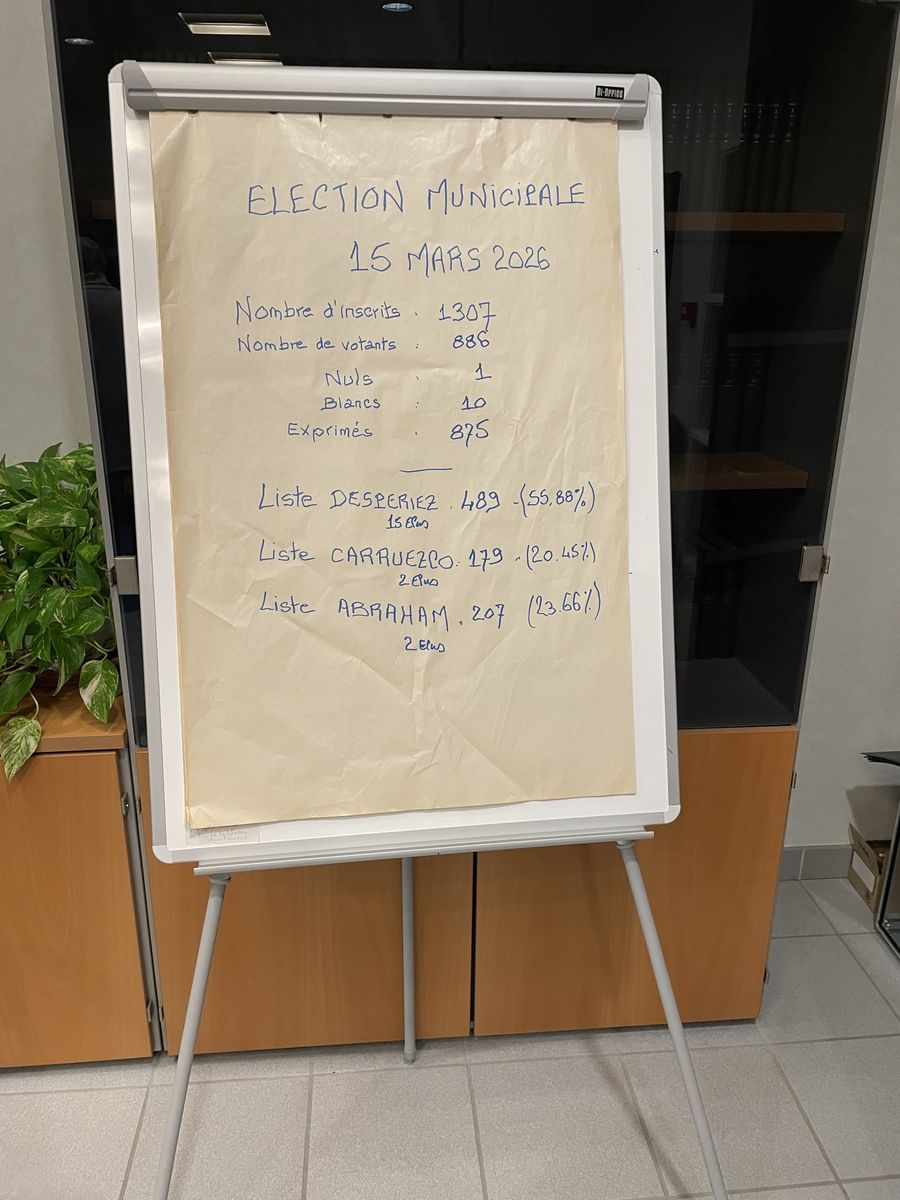 Bi-Office
ELECTION MUNICIPALE
15 MARS 2026
Nombre d'inscrits : 1307
Nombre de votants : 886
Nuls : 1
Blancs : 10
Exprimés : 875
Liste DESPERIEZ . 489 - (55,88%)
15 Elus
Liste CARRUEZCO : 179 - (20.45%)
2 Elus
Liste ABRAHAM . 207 (23.66%)
2 Elus